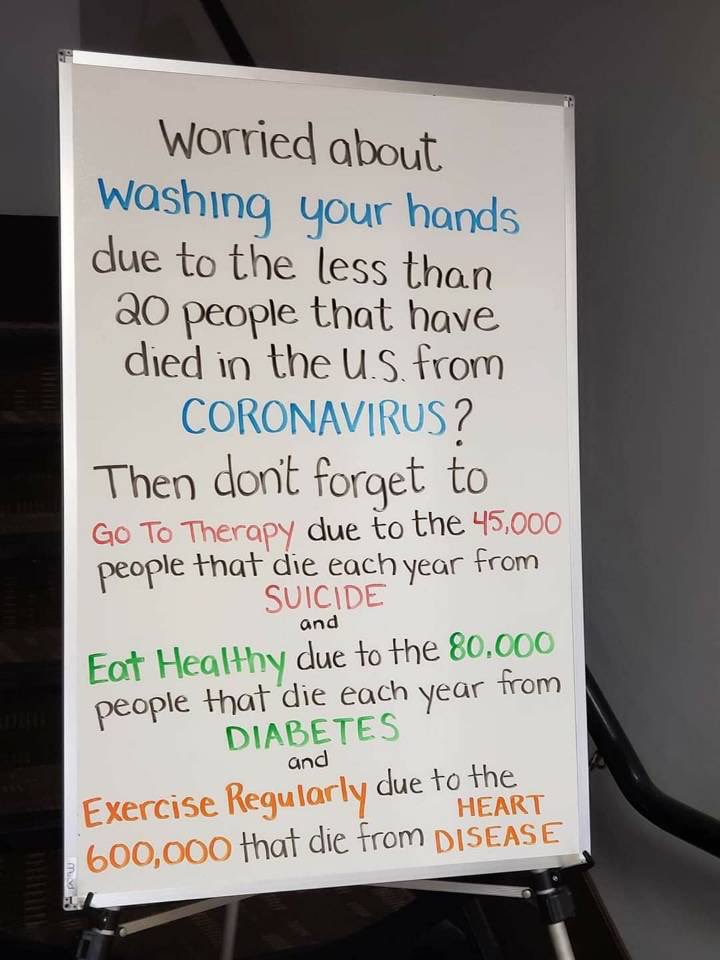 Worried about
Washing your hands
due to the less than
20 people that have
died in the U.S. from
CORONAVIRUS?
Then don't forget to
Go To Therapy due to the 45,000
people that die each year from
SUICIDE
and
Eat Healthy due to the 80,000
people that die each year from
DIABETES
and
Exercise Regularly due to the
600,000 that die from HEART DISEASE